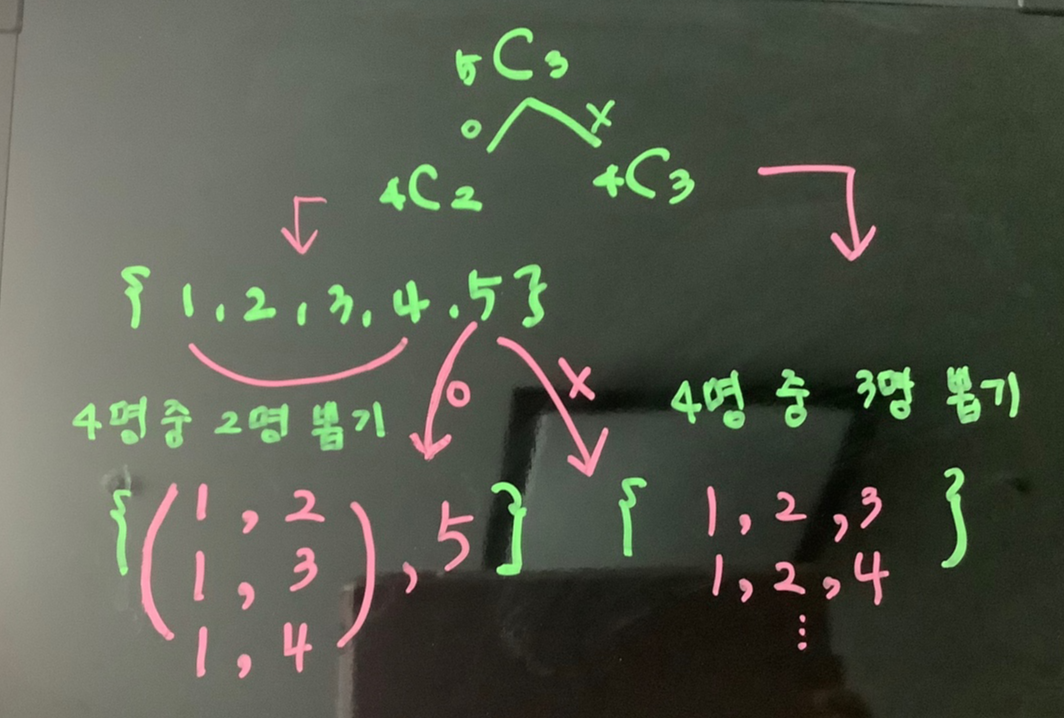 5C3
O X
4C2 4C3
{ 1, 2, 3, 4, 5 }
O X
4명 중 2명 뽑기
4명 중 3명 뽑기
{ ( 1, 2
1, 3
1, 4 ) , 5 }
{ 1, 2, 3
1, 2, 4
⋮ }